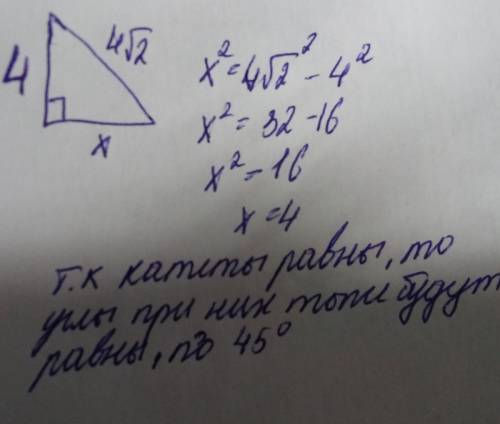 4
4√2
x
x² = 4√2² - 4²
x² = 32 - 16
x² = 16
x = 4
т.к катеты равны, то
углы при них тоже будут
равны, по 45°